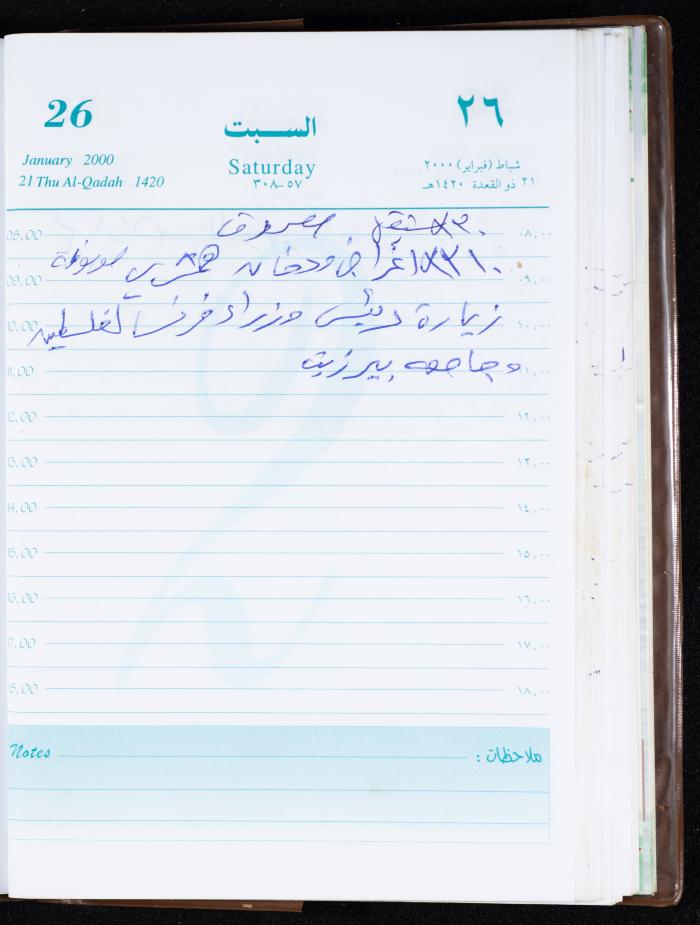 26
السبت
٢٦
January 2000
Saturday
شباط (فبراير) ٢٠٠٠
21 Thu Al-Qadah 1420
٣٠٨-٥٧
٢١ ذو القعدة ١٤٢٠هـ
08,00 ٠٨,٠٠
مصروف
09,00 ٠٩,٠٠
اغراض ودخان
زيارة رئيس وزراء فرنسا لفلسطين
10,00 ١٠,٠٠
وجامعه بيرزيت
11,00 ١١,٠٠
12,00 ١٢,٠٠
13,00 ١٣,٠٠
14,00 ١٤,٠٠
15,00 ١٥,٠٠
16,00 ١٦,٠٠
17,00 ١٧,٠٠
18,00 ١٨,٠٠
Notes ملاحظات :